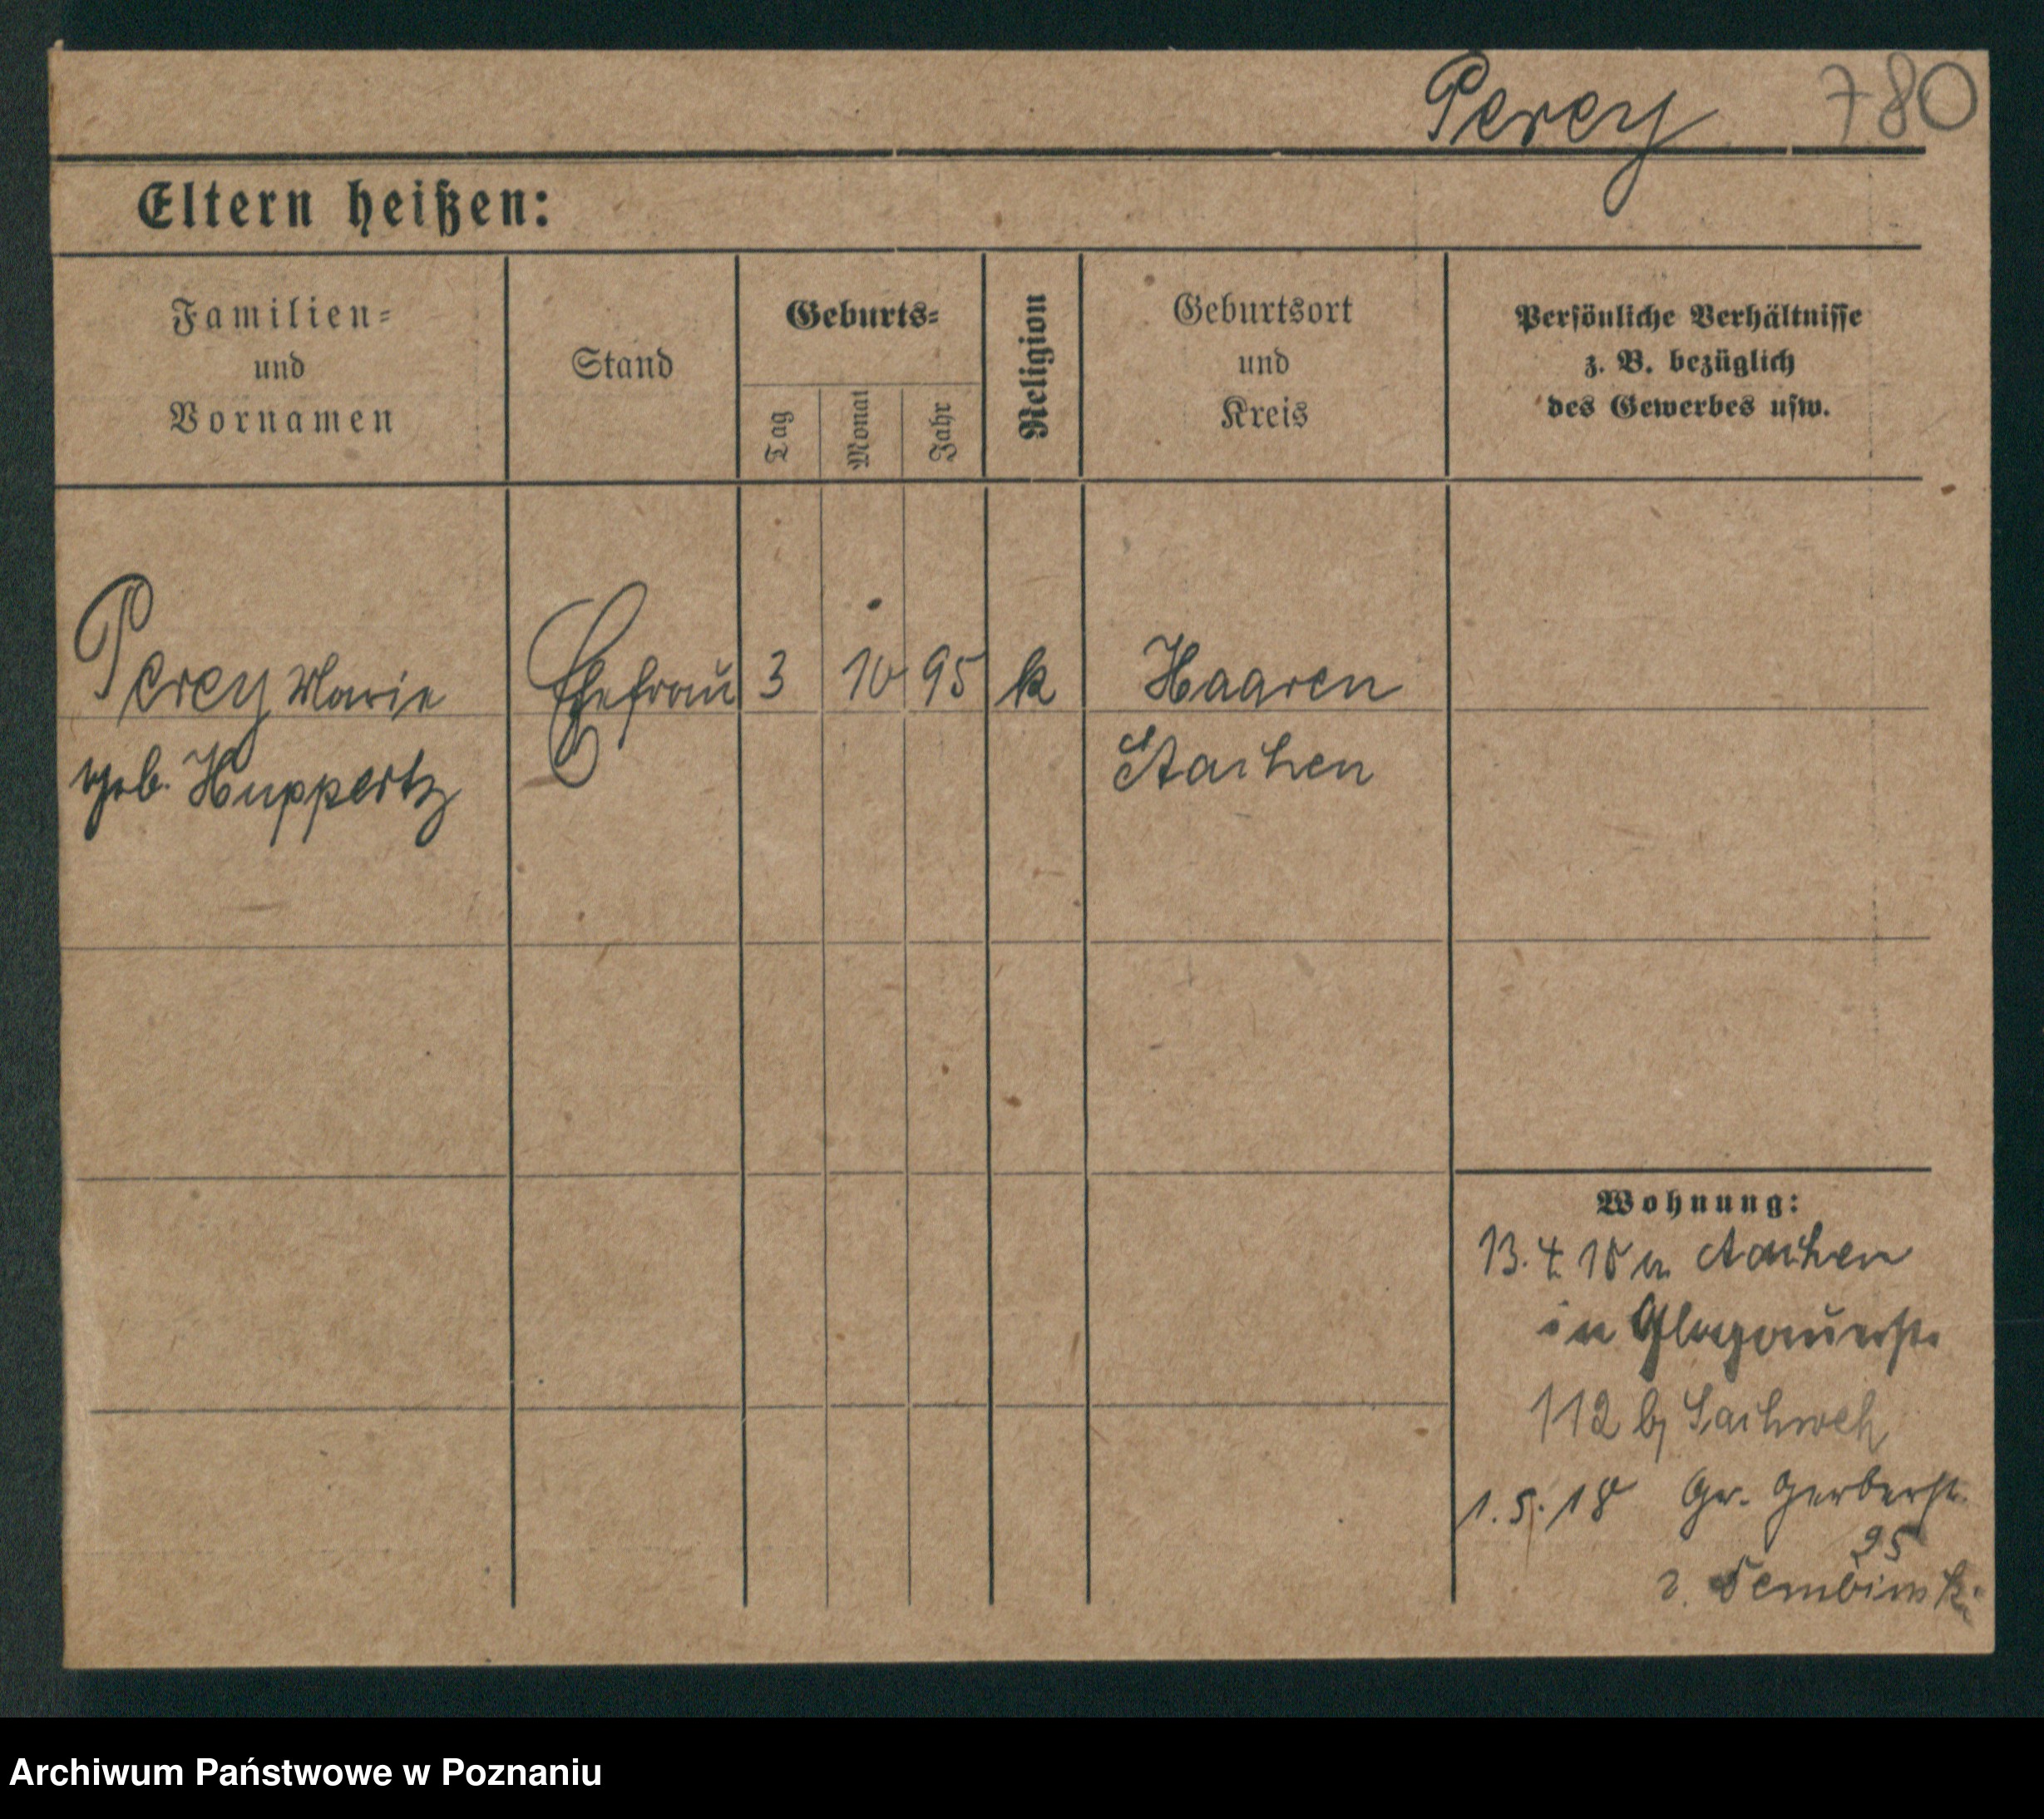 Percy 780
Eltern heißen:
Familien=
und
Vornamen
Stand
Geburts=
Tag
Monat
Jahr
Religion
Geburtsort
und
Kreis
Persönliche Verhältnisse
z. B. bezüglich
des Gewerbes usw.
Percy Marie Ehefrau 3 10 95 k Haaren
geb. Huppertz Aachen
Wohnung:
13. 4. 18 v. Aachen
in Glogauerstr.
112 b/
1. 5. 18 Gr. Gerberst.
25